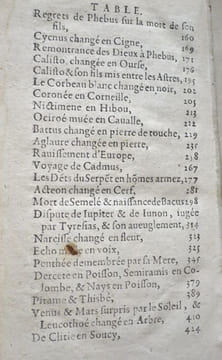 TABLE.
Regrets de Phebus sur la mort de son
fils, 160
Cycnus changé en Cigne, 169
Remontrance des Dieux à Phebus, 171
Calisto, changée en Ourse, 176
Calisto & son fils mis entre les Astres, 195
Le Corbeau blanc changé en noir, 202
Coronée en Corneille, 205
Nictimene en Hibou, 211
Ociroé muée en Caualle, 212
Battus changé en pierre de touche, 219
Aglaure changée en pierre, 235
Rauissement d'Europe, 238
Voyage de Cadmus, 267
Les Déts du Serpēt en hōmes armez, 277
Acteon changé en Cerf, 281
Mort de Semelé & naissance de Bacus 298
Dispute de Iupiter & de Iunon, iugée
par Tyresias, & son aueuglement, 314
Narcisse changé en fleur, 313
Echo muée en voix, 325
Penthée demembrée par sa Mere, 345
Dercete en Poisson, Semiramis en Co-
lombe, & Nays en Poisson, 389
Pirame & Thisbé, 389
Venus & Mars surpris par le Soleil, &
Leucothoé changée en Arbre, 420
De Clitie en Soucy, 424